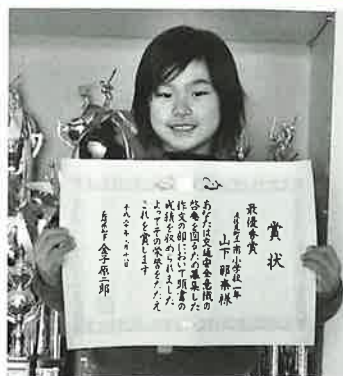 賞状
最優秀賞
小学校一年
山下 様
あなたは交通安全意識の
啓発を図るため募集した
作文の部において頭書の
成績を収められました
よってその栄誉をたたえ
これを賞します
平成 年 月 日
金子原二郎